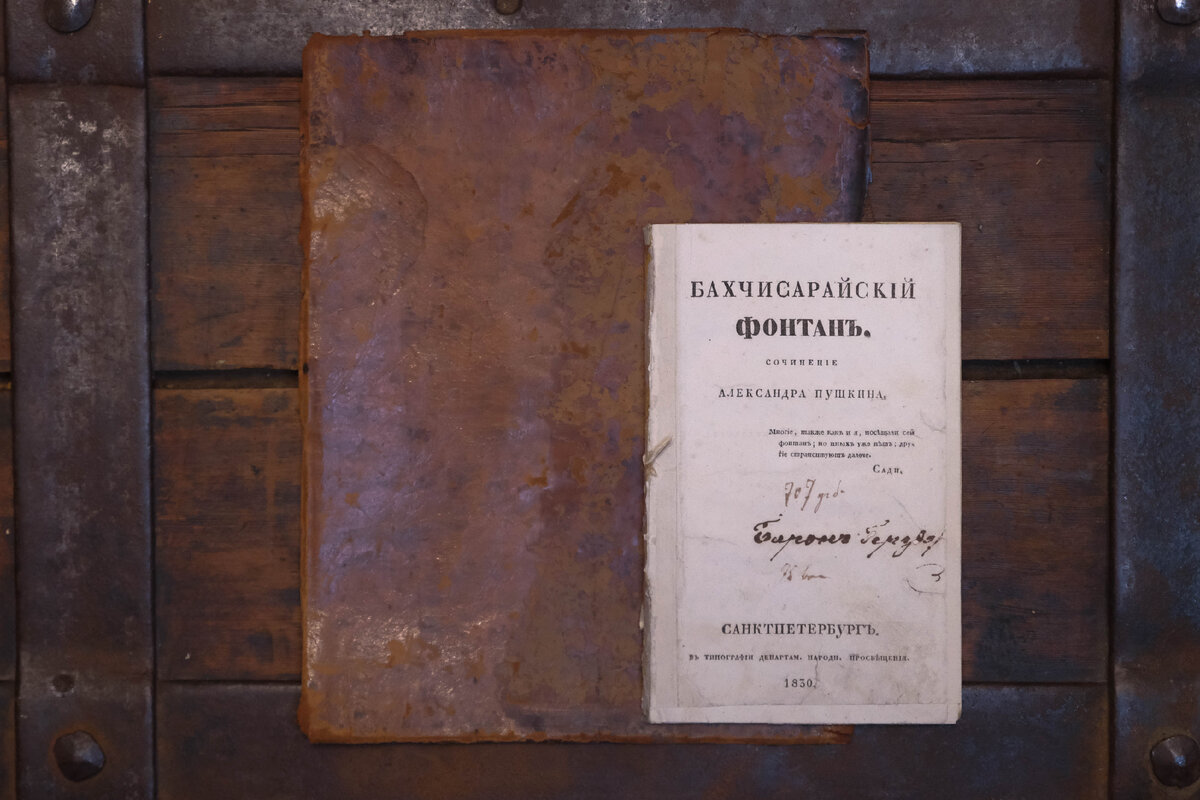 БАХЧИСАРАЙСКІЙ
ФОНТАНЪ.
СОЧИНЕНІЕ
АЛЕКСАНДРА ПУШКИНА.
Многіе, также какъ и я, посѣщали сей
фонтанъ; но иныхъ уже нѣтъ; другіе
странствуютъ далече.
САДИ.
707
Баронъ
САНКТПЕТЕРБУРГЪ.
ВЪ ТИПОГРАФІИ ДЕПАРТАМ. НАРОДН. ПРОСВѢЩЕНІЯ.
1830.